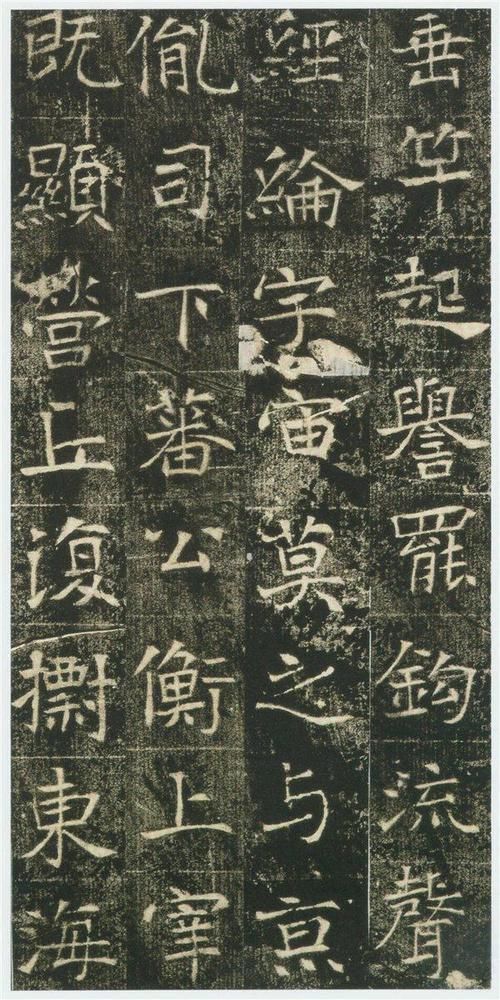 垂竿起譽罷鈞流聲
經綸宇宙莫之与京
胤司下蕃公衡上宰
既顯營丘復摽東海